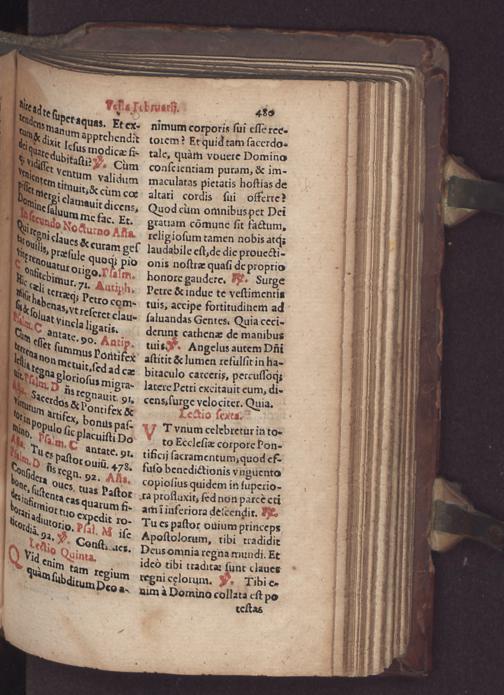 Festa Februarij.
480
nire ad te super aquas. Et ex-
tendens manum apprehendit
eum & dixit Iesus modicæ fi-
dei quare dubitasti? ℣. Cùm
vidisset ventum validum
venientem timuit, & cùm cœ
pisset mergi clamauit dicens,
Domine saluum me fac. Et.
In secundo Nocturno Aña.
Qui regni claues & curam
tut ouilis, præsule quoqȝ pio
renouatur origo. Psalm.
Confitebimur. 71. Antiph.
Hic cæli terræqȝ Petro com-
misit habenas, vt reseret clau-
sa & soluat vincla ligatis.
Psalm. Cantate. 90. Antip.
Cùm esset summus Pontifex
terrena non metuit, sed ad cæ
lestia regna gloriosus migra-
uit. Psalm. Dñs regnauit. 91.
Aña. Sacerdos & Pontifex &
virtutum artifex, bonus pas-
tor in populo sic placuisti Do
mino. Psalm. Cantate. 91.
Aña. Tu es pastor ouiũ. 478.
Psalm. Dñs regn. 92. Aña.
Considera oues tuas Pastor
bone, sustenta eas quarum fi-
des infirmior tuo expedit ro-
borari adiutorio. Psal. Mise
ricordiã. 92. ℣. Constitues.
Lectio Quinta.
QVid enim tam regium
quàm subditum Deo a-
nimum corporis sui esse rec-
torem? Et quid tam sacerdo-
tale, quàm vouere Domino
conscientiam puram, & im-
maculatas pietatis hostias de
altari cordis sui offerre?
Quod cùm omnibus per Dei
gratiam cõmune sit factum,
religiosum tamen nobis atqȝ
laudabile est, de die prouecti-
onis nostræ quasi de proprio
honore gaudere. ℟. Surge
Petre & indue te vestimentis
tuis, accipe fortitudinem ad
saluandas Gentes. Quia ceci-
derunt cathenæ de manibus
tuis. ℣. Angelus autem Dñi
astitit & lumen refulsit in ha-
bitaculo carceris, percussoqȝ
latere Petri excitauit eum, di-
cens, surge velociter. Quia.
Lectio sexta.
VT vnum celebretur in to-
to Ecclesiæ corpore Pon-
tificij sacramentum, quod ef-
fuso benedictionis vnguento
copiosius quidem in superio-
ra profluxit, sed non parcè eti
am ĩ inferiora descendit. ℟.
Tu es pastor ouium princeps
Apostolorum, tibi tradidit
Deus omnia regna mundi. Et
ideò tibi traditæ sunt claues
regni cęlorum. ℣. Tibi e-
nim à Domino collata est po
testas